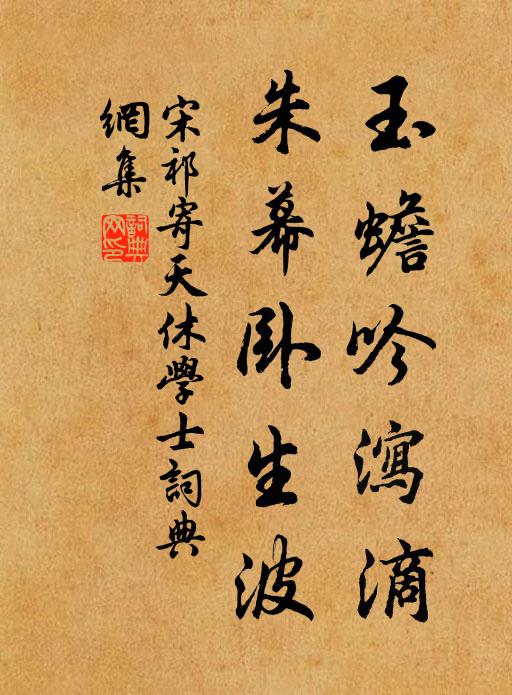 玉蟾吟瀉滴
朱幕卧生波
宋祁寄天休學士詞典
網集
詞典網印